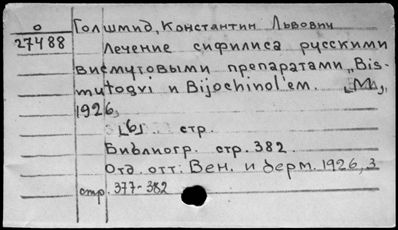 О
27488
Голшмид, Константин Львович
Лечение сифилиса русскими
висмутовыми препаратами „Bis-
mutogvi и Bijochinol'ем. [М],
1926,
[6] стр.
Библиогр. стр. 382.
Отд. отт: Вен. и дерм. 1926, 3
стр. 377-382